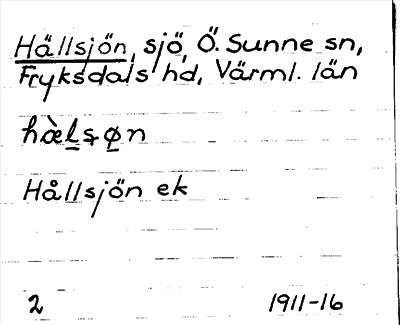 Hällsjön, sjö, Ö. Sunne sn,
Fryksdals hd, Värml. län
hàlsøn
Hållsjön ek
2 1911-16